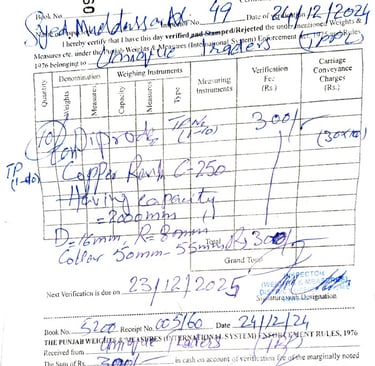 Book No 49 Date of 24/12/2024
I hereby certify that I have this day verified and Stamped/Rejected the undermentioned Weights &
Measures etc. under the Punjab Weights & Measures (International System) Enforcement Rules
1976 belonging to Unique Traders
Quantity Denomination Weighing Instruments Measuring Instruments Verification Fee (Rs.) Carriage Conveyance Charges (Rs.)
Weights Measures Capacity Measures Type
(10) Dip rods 300/-
(1-10)
Copper Rod C-250
Having capacity
= 2000mm
D=16mm, R=8mm Total Rs 300/-
Collar 50mm 55mm
Grand Total
Next Verification is due on 23/12/2025
INSPECTOR
Signature and Designation
Book No. 5200 Receipt No. 005/60 Date 24/12/24
THE PUNJAB WEIGHTS & MEASURES (INTERNATIONAL SYSTEM) ENFORCEMENT RULES, 1976
Received from Unique Traders
The Sum of Rs. 300/- in cash on account of verification fee of the marginally noted